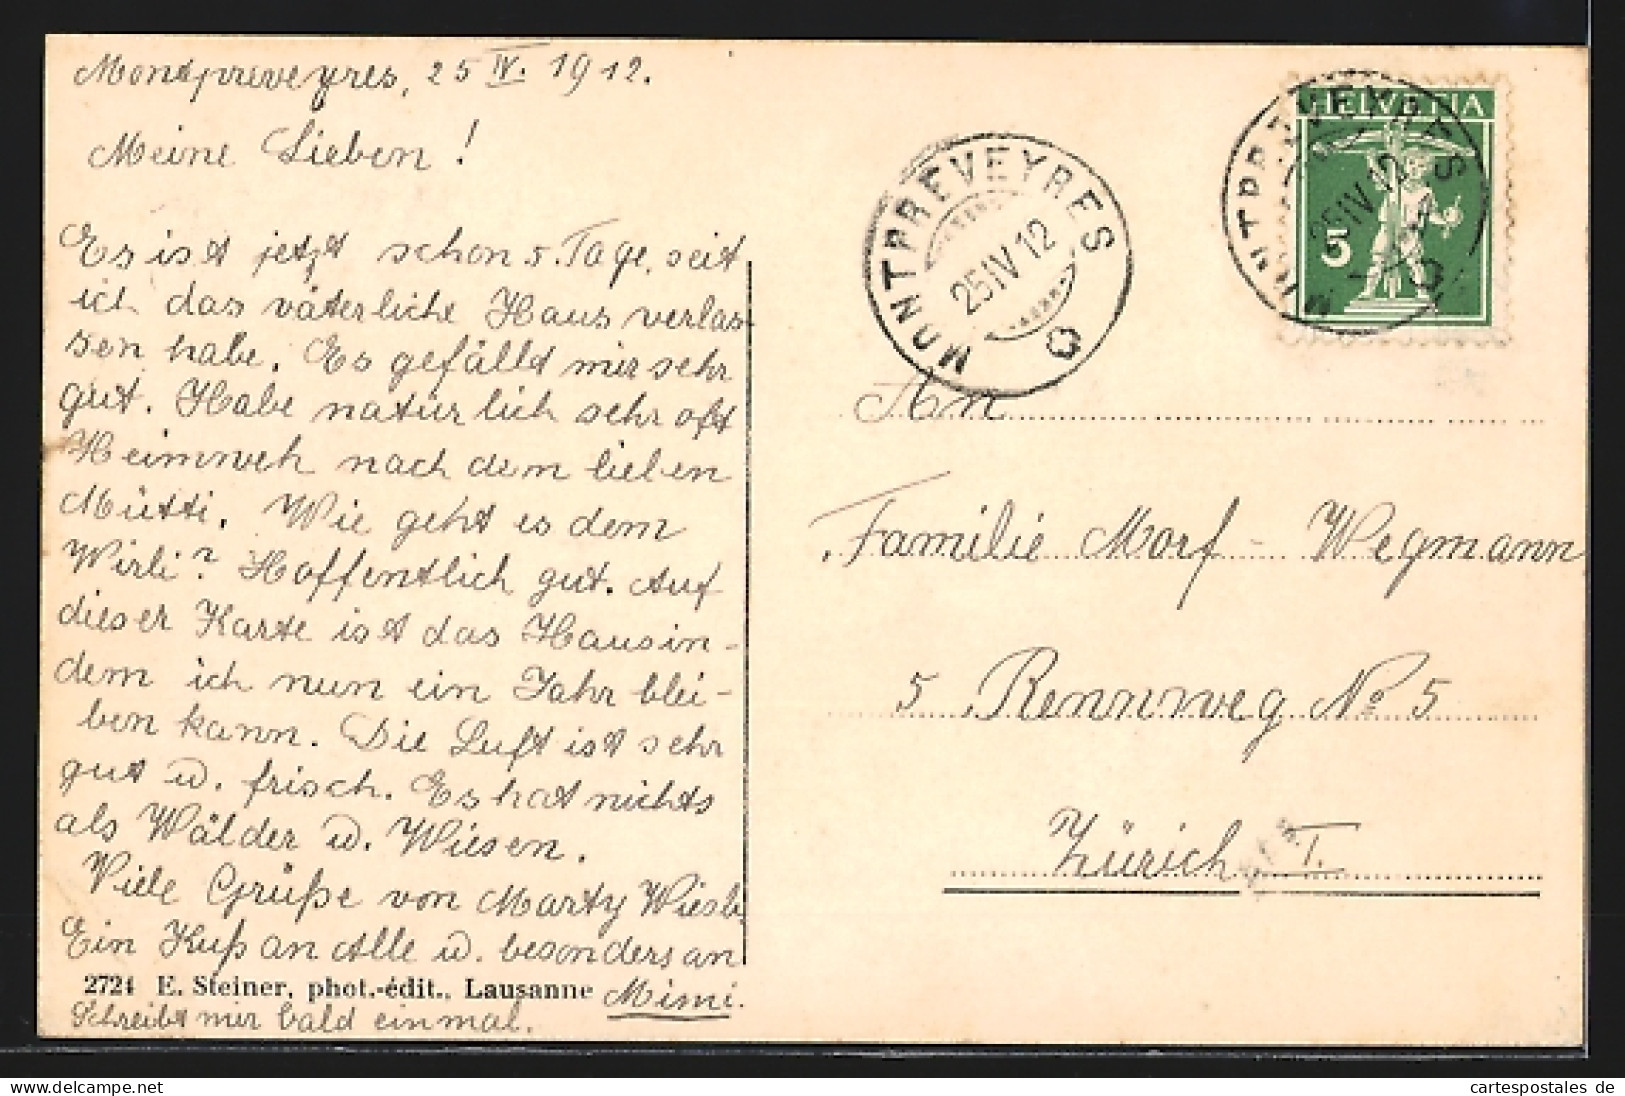 Montpreveyres, 25 IV. 1912.
Meine Lieben!
Es ist jetzt schon 5. Tage, seit
ich das väterliche Haus verlas-
sen habe. Es gefällt mir sehr
gut. Habe natürlich sehr oft
Heimweh nach dem lieben
Mütti. Wie geht es dem
Wirli? Hoffentlich gut. Auf
dieser Karte ist das Haus in-
dem ich nun ein Jahr blei-
ben kann. Die Luft ist sehr
gut u. frisch. Es hat nichts
als Wälder u. Wiesen.
Viele Grüße von Marty Wiesli
Ein Kuß an Alle u. besonders an
Mimi.
Schreibt mir bald einmal.
2724 E. Steiner, phot.-édit., Lausanne
MONTPREVEYRES
25 IV 12
HELVETIA
5
MONTPREVEYRES
25 IV 12
An
Familie Morf - Wegmann
5 Rennweg No 5
Zürich I.
www.cartespostales.de
cartespostales de